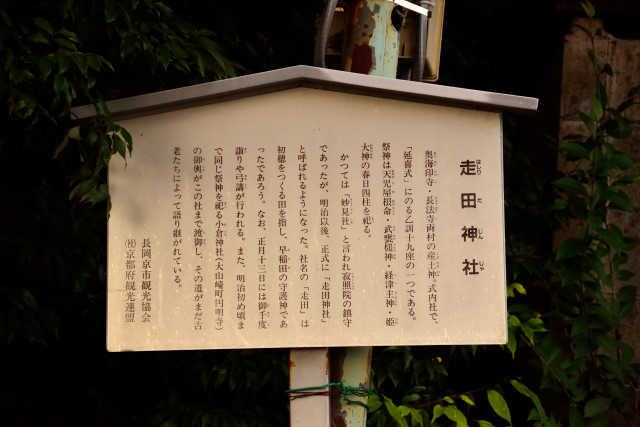 走田神社
奥海印寺・長法寺両村の産土神・式内社で、
「延喜式」にのる乙訓十九座の一つである。
祭神は天児屋根命・武甕槌神・経津主神・姫
大神の春日四柱を祀る。
かつては「妙見社」と言われ寂照院の鎮守
であったが、明治以後、正式に「走田神社」
と呼ばれるようになった。社名の「走田」は
初穂をつくる田を指し、早稲田の守護神であ
ったであろう。なお、正月十三日には御千度
詣りや弓講が行われる。また、明治初め頃ま
で同じ祭神を祀る小倉神社(大山崎町円明寺)
の御輿がこの社まで渡御し、その道がまだ古
老たちによって語り継がれている。
長岡京市観光協会
㈳京都府観光連盟